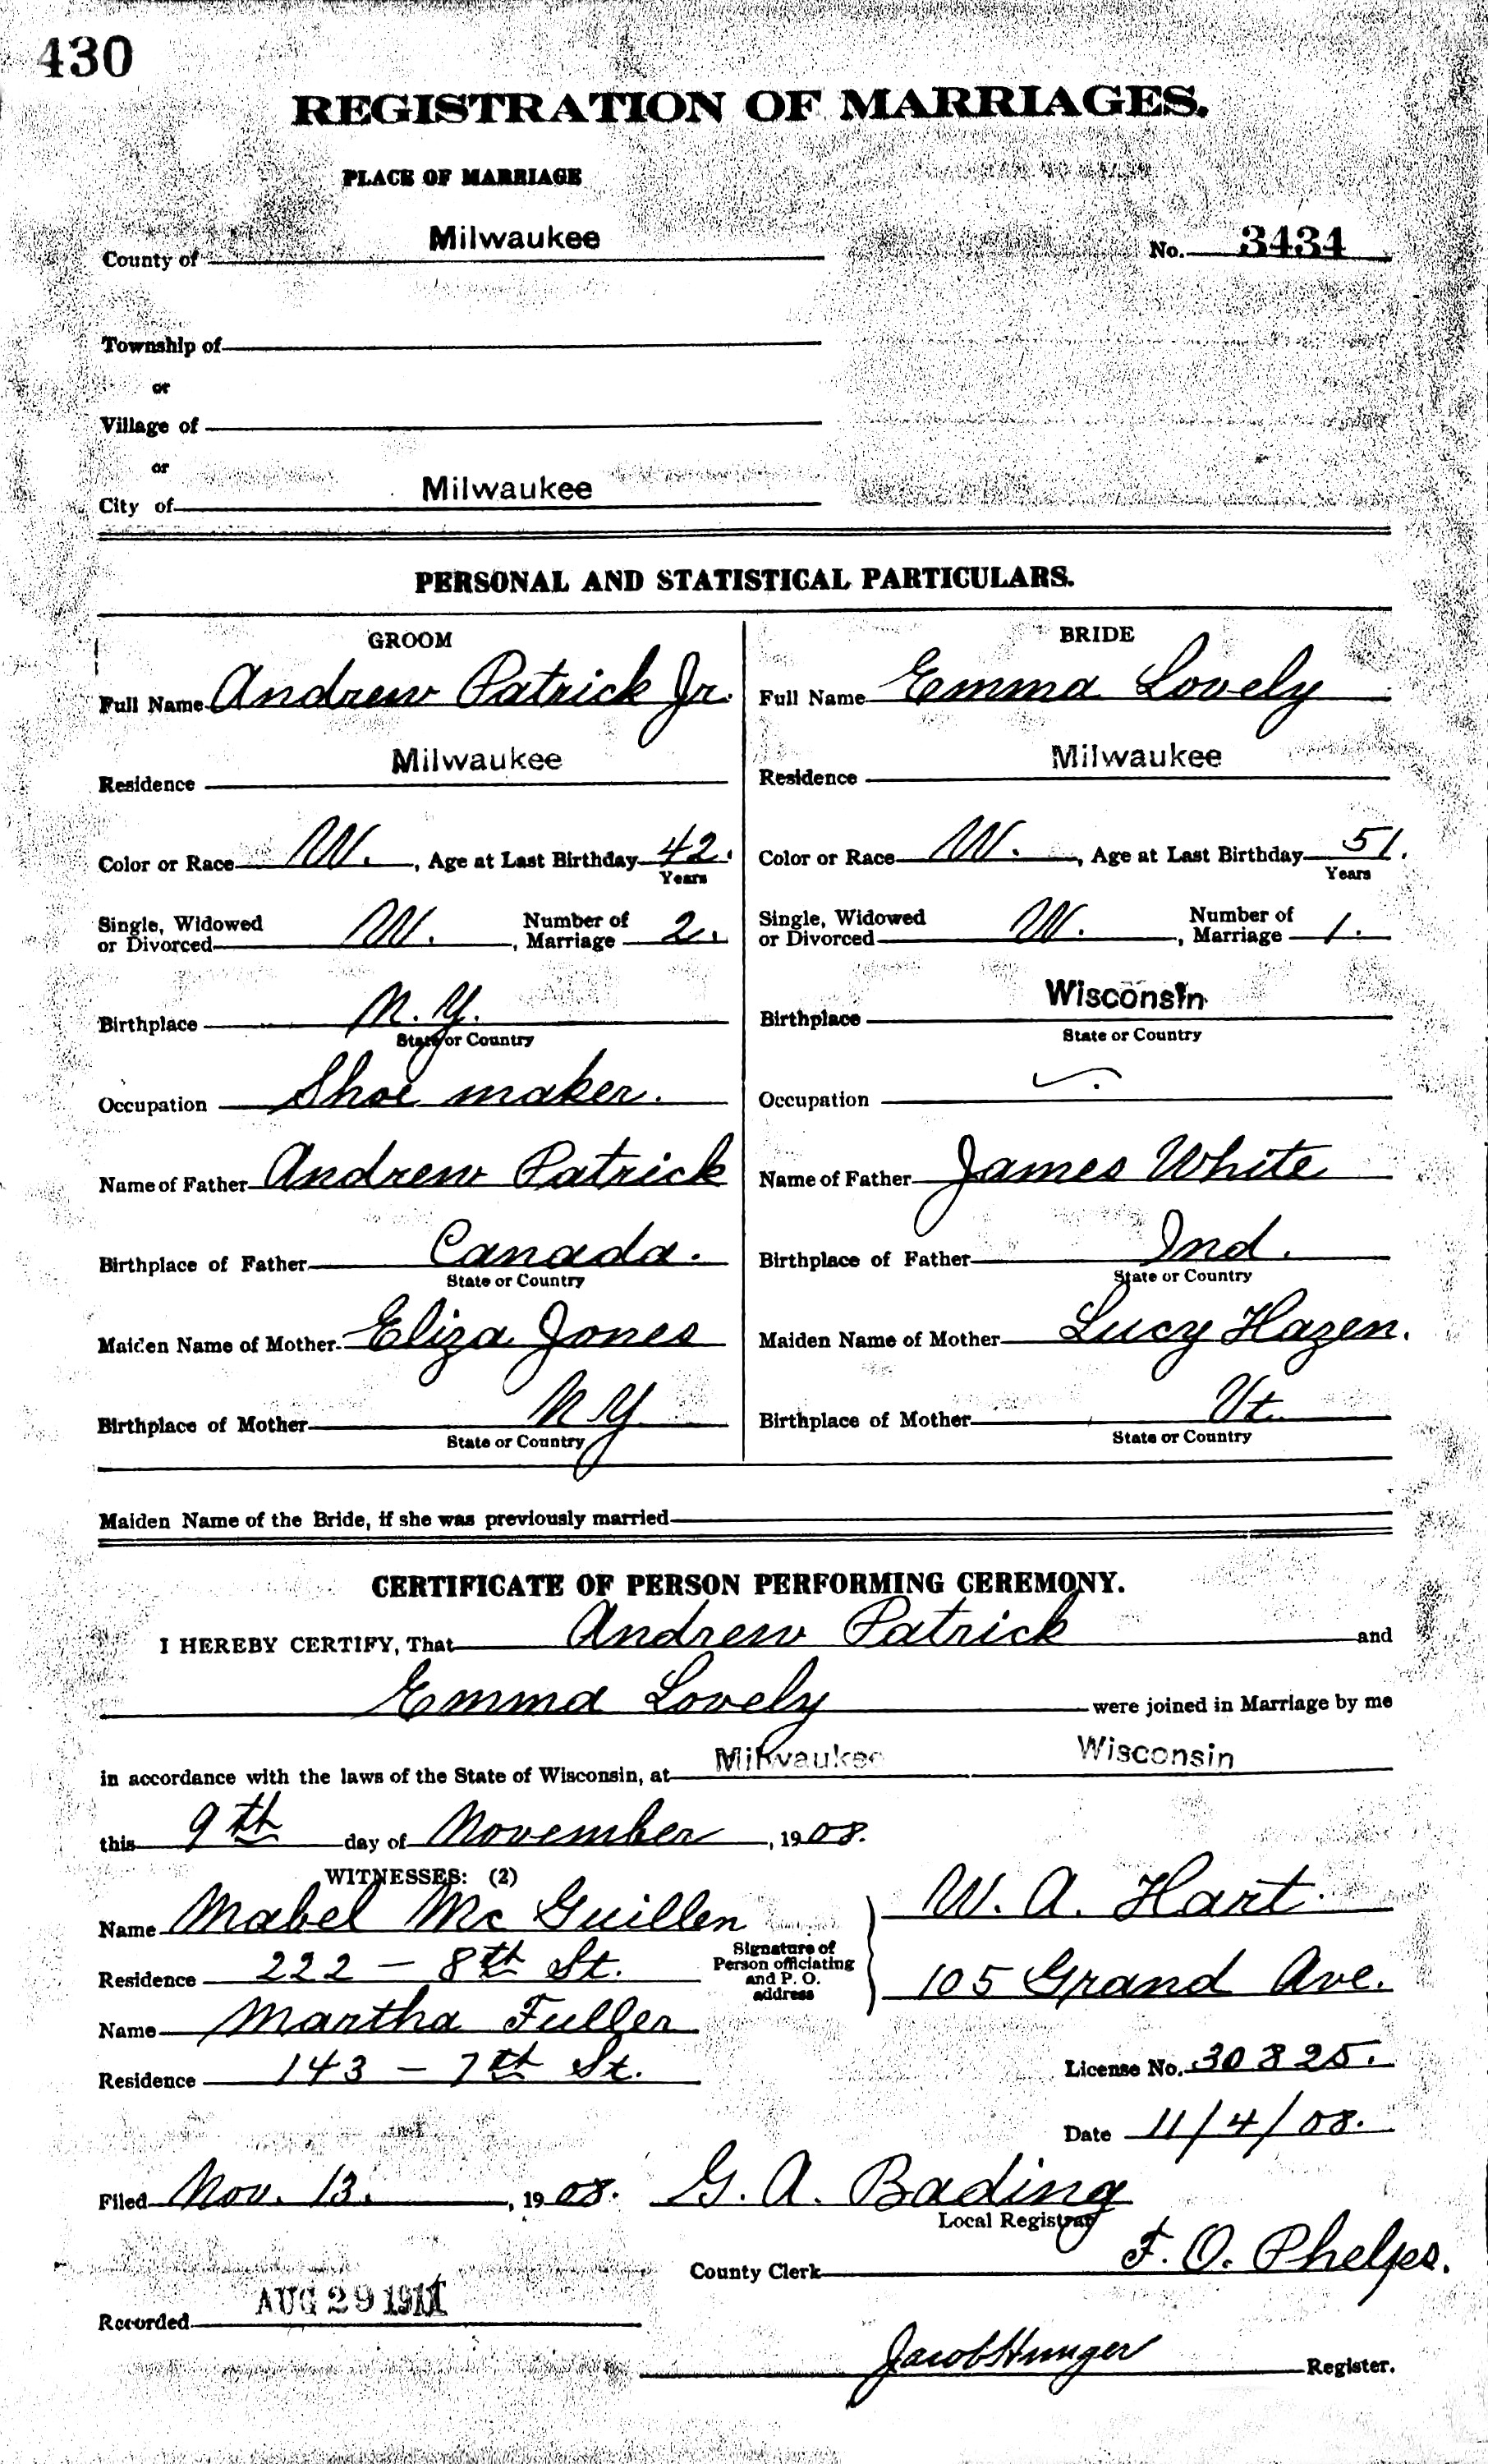 430
REGISTRATION OF MARRIAGES.
PLACE OF MARRIAGE
County of Milwaukee No. 3434
Township of
or
Village of
or
City of Milwaukee
PERSONAL AND STATISTICAL PARTICULARS.
GROOM
Full Name Andrew Patrick Jr.
Residence Milwaukee
Color or Race W., Age at Last Birthday 42.
Years
Single, Widowed or Divorced W., Number of Marriage 2.
Birthplace N.Y.
State or Country
Occupation Shoe maker.
Name of Father Andrew Patrick
Birthplace of Father Canada.
State or Country
Maiden Name of Mother Eliza Jones
Birthplace of Mother N Y
State or Country
BRIDE
Full Name Emma Lovely
Residence Milwaukee
Color or Race W., Age at Last Birthday 51.
Years
Single, Widowed or Divorced W., Number of Marriage 1.
Birthplace Wisconsin
State or Country
Occupation
Name of Father James White
Birthplace of Father Ind.
State or Country
Maiden Name of Mother Lucy Hazen.
Birthplace of Mother Vt.
State or Country
Maiden Name of the Bride, if she was previously married
CERTIFICATE OF PERSON PERFORMING CEREMONY.
I HEREBY CERTIFY, That Andrew Patrick and
Emma Lovely were joined in Marriage by me
in accordance with the laws of the State of Wisconsin, at Milwaukee Wisconsin
this 9th day of November, 1908.
WITNESSES: (2)
Name Mabel Mc Guillen
Residence 222 - 8th St.
Name Martha Fuller
Residence 143 - 7th St.
Signature of
Person officiating
and P. O.
address
W. A. Hart
105 Grand Ave.
License No. 30325.
Date 11/4/08.
Filed Nov. 13., 1908. G. A. Bading
Local Registrar
County Clerk F. O. Phelps.
Recorded AUG 29 1911
Jacob Hunger Register.